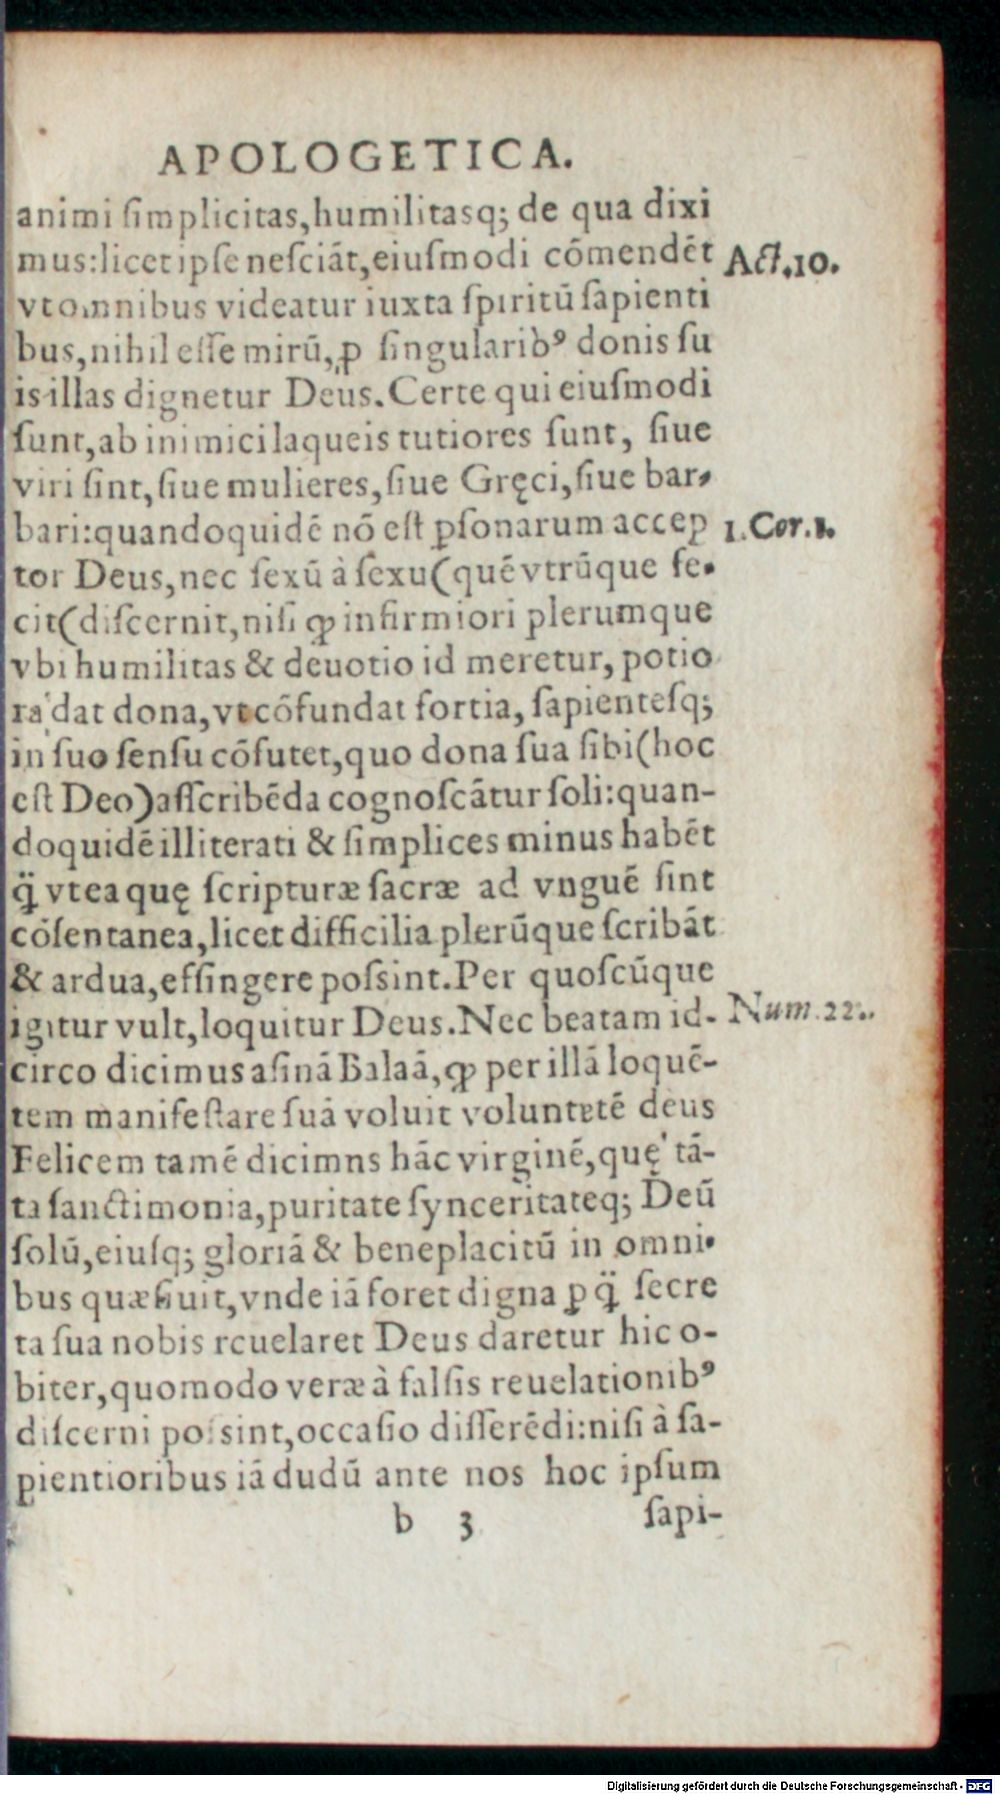 APOLOGETICA.
animi ſimplicitas,humilitasq; de qua dixi
mus:licet ipſe neſciāt,eiuſmodi cōmendēt Act.10.
vt omnibus videatur iuxta ſpiritū ſapienti
bus,nihil eſſe mirū,ꝓ ſingularibꝰ donis ſu
is illas dignetur Deus.Certe qui eiuſmodi
ſunt,ab inimici laqueis tutiores ſunt, ſiue
viri ſint,ſiue mulieres,ſiue Gręci,ſiue bar-
bari:quandoquidē nō eſt ꝑſonarum accep 1.Cor.1.
tor Deus,nec ſexū à ſexu(quē vtrūque fe-
cit(diſcernit,niſi ꝙ infirmiori plerumque
vbi humilitas & deuotio id meretur, potio
ra dat dona,vt cōfundat fortia, ſapienteſq;
in ſuo ſenſu cōfutet,quo dona ſua ſibi(hoc
eſt Deo)aſſcribēda cognoſcātur ſoli:quan-
doquidē illiterati & ſimplices minus habēt
q̈ vt ea quę ſcripturæ ſacræ ad vnguē ſint
cōſentanea,licet difficilia plerūque ſcribāt
& ardua,effingere poſsint.Per quoſcūque
igitur vult,loquitur Deus.Nec beatam id- Num.22..
circo dicimus aſinā Balaā,ꝙ per illā loquē-
tem manifeſtare ſuā voluit voluntetē deus
Felicem tamē dicimns hāc virginē,quę tā-
ta ſanctimonia,puritate ſynceritateq; Deū
ſolū,eiuſq; gloriā & beneplacitū in omni-
bus quæſiuit,vnde iā foret digna ꝑ q̈ ſecre
ta ſua nobis rcuelaret Deus daretur hic o-
biter,quomodo veræ à falſis reuelationibꝰ
diſcerni poſsint,occaſio diſſerēdi:niſi à ſa-
pientioribus iā dudū ante nos hoc ipſum
b 3 ſapi-
Digitalisierung gefördert durch die Deutsche Forschungsgemeinschaft - DFG